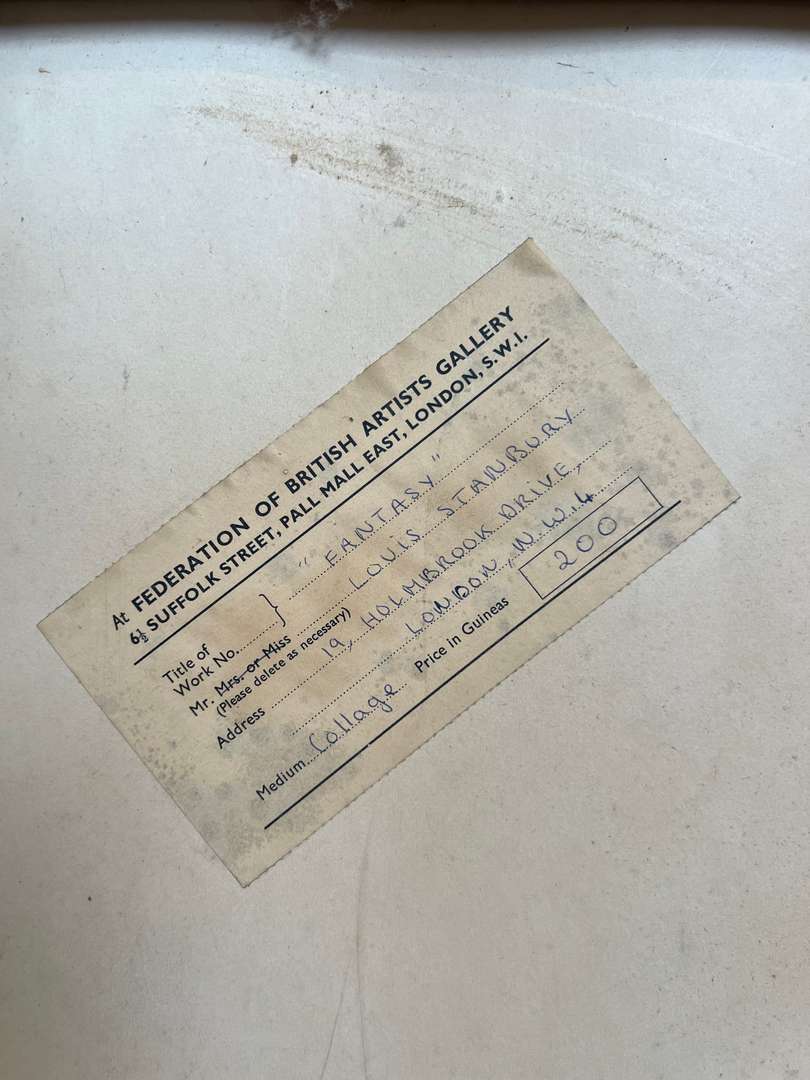 At FEDERATION OF BRITISH ARTISTS GALLERY
6½ SUFFOLK STREET, PALL MALL EAST, LONDON, S.W.1.
Title of
Work No. } "FANTASY"
Mr. Mrs. or Miss LOUIS STANBURY
(Please delete as necessary)
Address 19, HOLMBROOK DRIVE,
LONDON, N.W.4
Medium Collage Price in Guineas 200